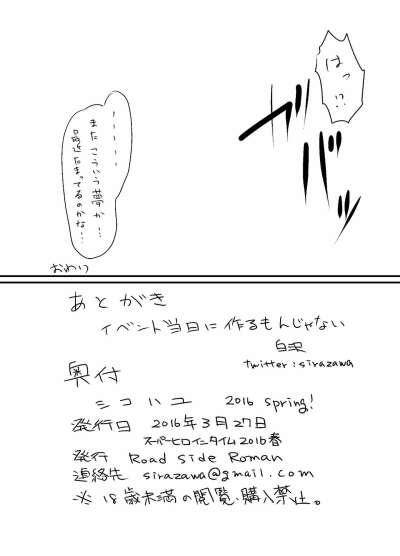 はっ!?
ガバッ
ーーーーー
またこういう夢か…
最近たまってるのかな…
おわり
あとがき
イベント当日に作るもんじゃない
白沢
twitter:sirazawa
奥付
シコハユ 2016 spring!
発行日 2016年3月27日
スーパーヒロインタイム2016春
発行 Road Side Roman
連絡先 sirazawa@gmail.com
※18歳未満の閲覧・購入禁止。